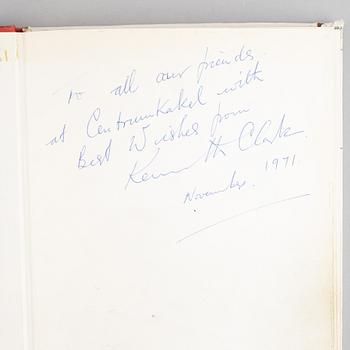 To all our friends
at Centrumkakel with
Best Wishes from
Kenneth Clark.
November. 1971.